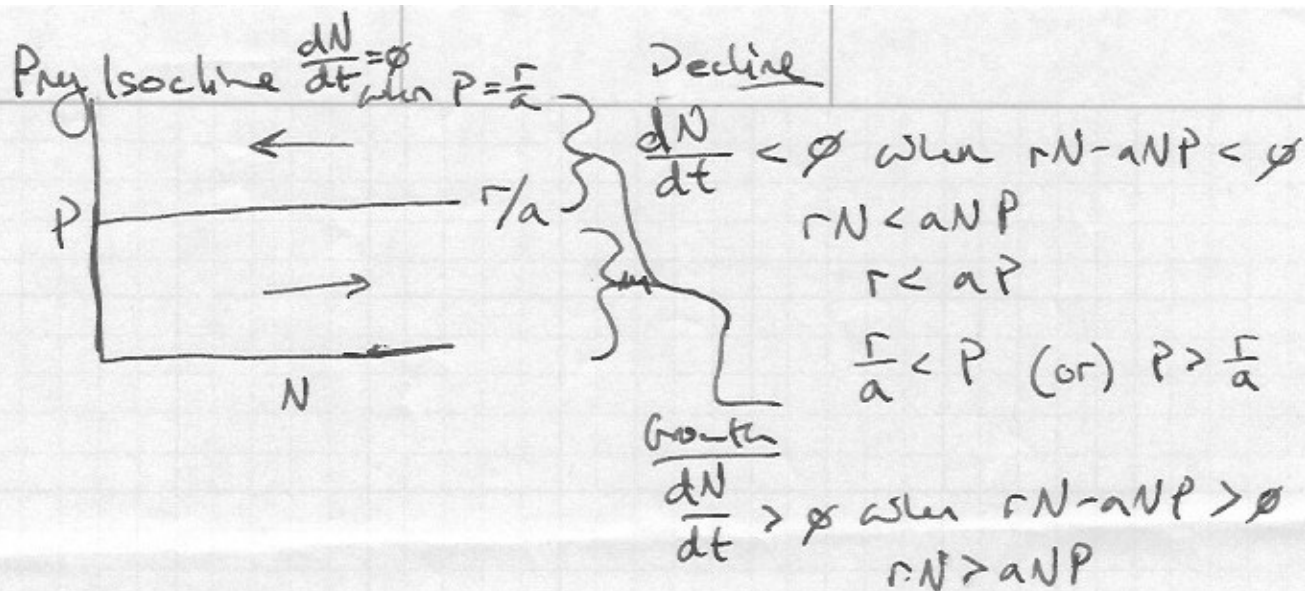 Prey Isocline dN/dt = ∅ when P = r/a
P
r/a
N
Decline
dN/dt < ∅ when rN - aNP < ∅
rN < aNP
r < aP
r/a < P (or) P > r/a
Growth
dN/dt > ∅ when rN - aNP > ∅
rN > aNP